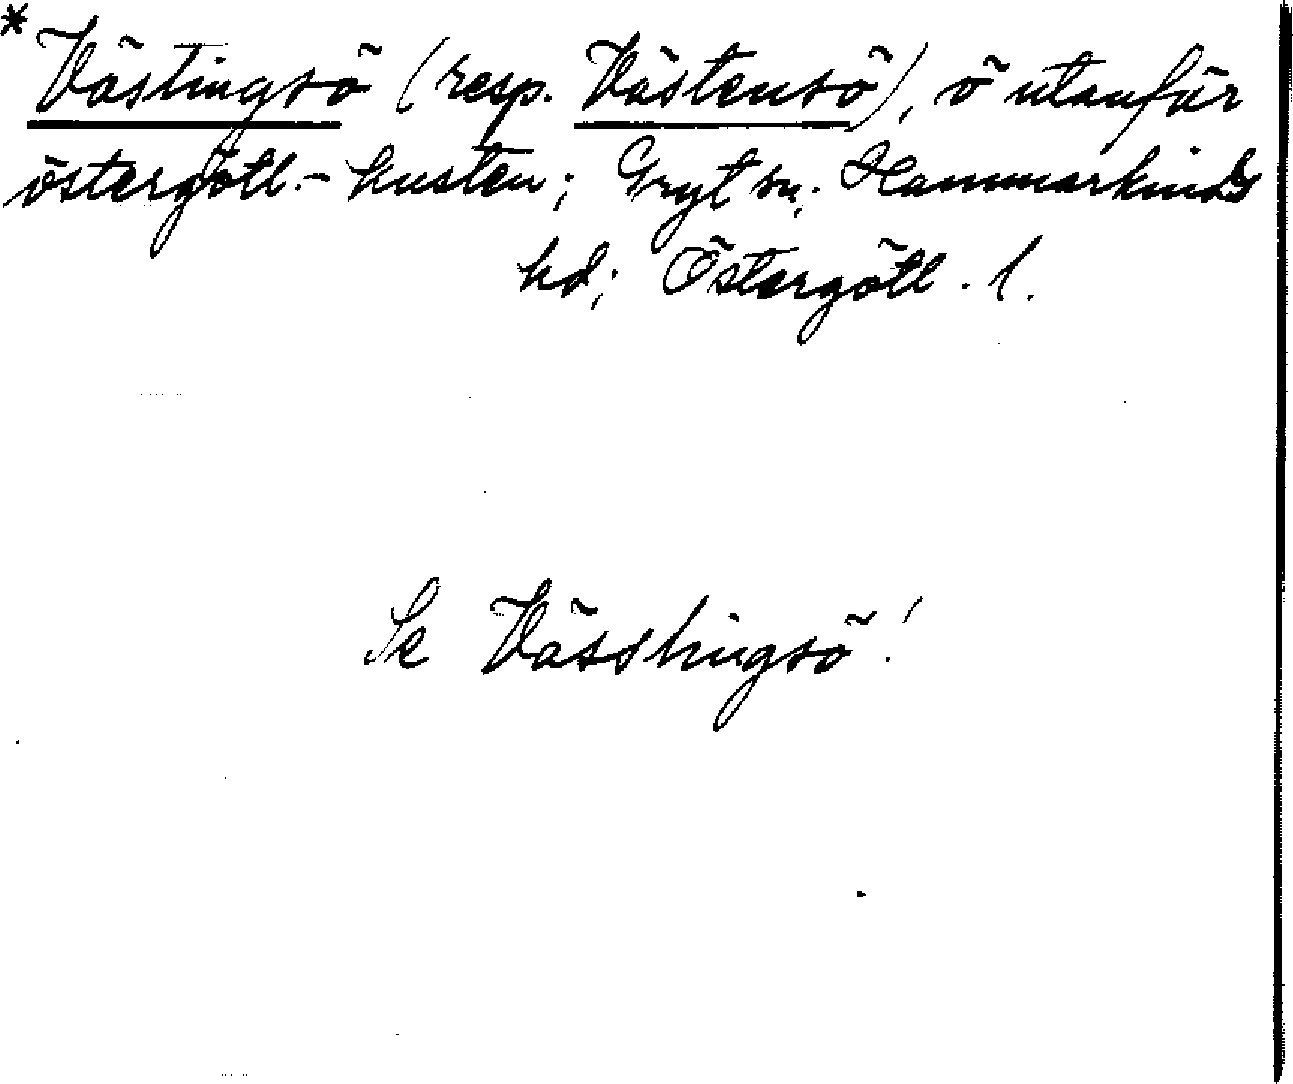 * Västingsö (resp. Västensö), ö utanför
östergötl.-kusten; Gryt sn; Hammarkinds
hd; Östergötl. l.
Se Vässhingsö!